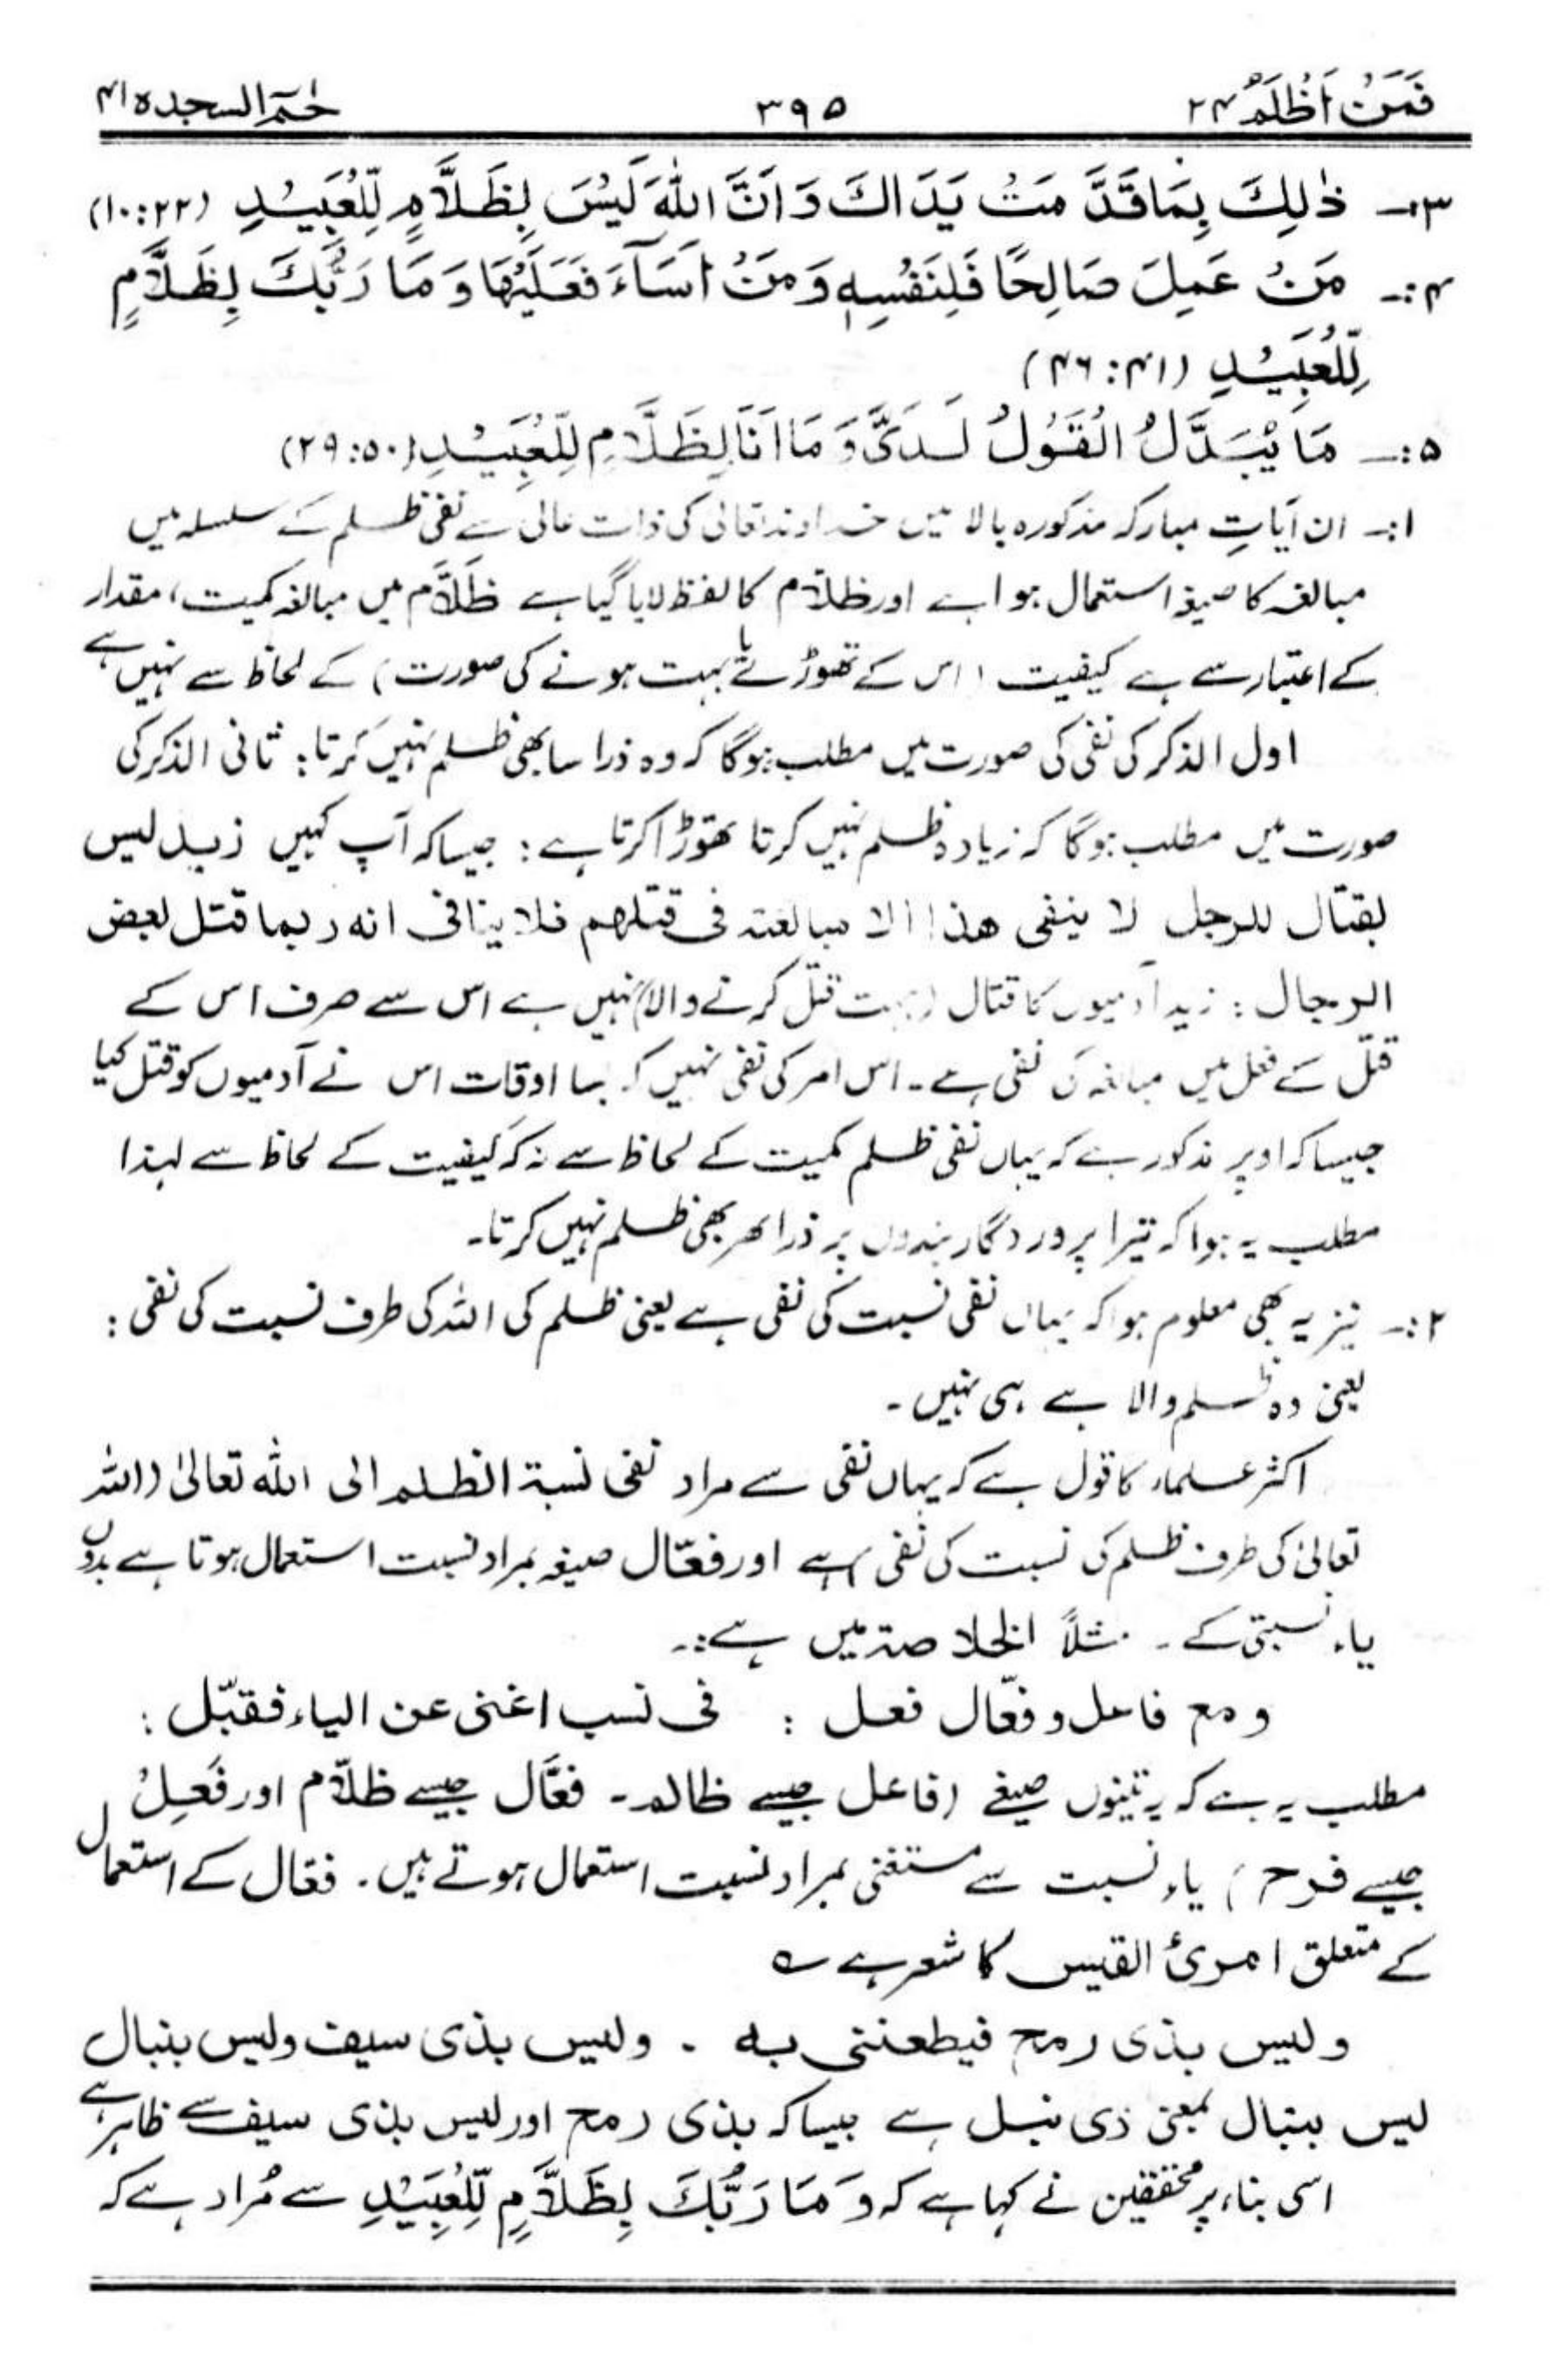 فَمَنْ اَظْلَمُ ۲۴ ۳۹۵ حٰمٓ السجدہ ۴۱
۳:۔ ذٰلِكَ بِمَا قَدَّ مَتْ يَدَاكَ وَ اَنَّ اللّٰهَ لَيْسَ بِظَلَّامٍ لِّلْعَبِيْدِ (۲۲:۱۰)
۴:۔ مَنْ عَمِلَ صَالِحًا فَلِنَفْسِهٖ وَ مَنْ اَسَآءَ فَعَلَيْهَا وَ مَا رَبُّكَ بِظَلَّامٍ
لِّلْعَبِيْدِ (۴۱:۴۶)
۵:۔ مَا يُبَدَّلُ الْقَوْلُ لَدَىَّ وَ مَا اَنَا بِظَلَّامٍ لِّلْعَبِيْدِ (۵۰:۲۹)
۱:۔ ان آیاتِ مبارکہ مذکورہ بالا میں خداوند تعالیٰ کی ذات عالی سے نفی ظلم کے سلسلہ میں
مبالغہ کا صیغہ استعمال ہوا ہے اور ظلّام کا لفظ لایا گیا ہے ظَلَّام میں مبالغہ کمیت، مقدار
کے اعتبار سے ہے کیفیت (اس کے تھوڑے یا بہت ہونے کی صورت) کے لحاظ سے نہیں ہے
اول الذکر کی نفی کی صورت میں مطلب ہوگا کہ وہ ذرا سا بھی ظلم نہیں کرتا: ثانی الذکر کی
صورت میں مطلب ہوگا کہ زیادہ ظلم نہیں کرتا تھوڑا کرتا ہے: جیسا کہ آپ کہیں زید لیس
بقتال للرجل لا ینفی ھذا الا مبالغتہ فی قتلھم فلا ینافی انہ ربما قتل بعض
الرجال: زید آدمیوں کا قتال (بہت قتل کرنے والا) نہیں ہے اس سے صرف اس کے
قتل کے فعل میں مبالغہ کی نفی ہے۔ اس امر کی نفی نہیں کہ بسا اوقات اس نے آدمیوں کو قتل کیا
جیسا کہ اوپر مذکور ہے کہ یہاں نفی ظلم کمیت کے لحاظ سے نہ کہ کیفیت کے لحاظ سے لہذا
مطلب یہ ہوا کہ تیرا پروردگار بندوں پر ذرا بھر بھی ظلم نہیں کرتا۔
۲:۔ نیز یہ بھی معلوم ہوا کہ یہاں نفی نسبت کی نفی ہے یعنی ظلم کی اللہ کی طرف نسبت کی نفی:
یعنی وہ ظلم والا ہے ہی نہیں۔
اکثر علماء کا قول ہے کہ یہاں نفی سے مراد نفی نسبۃ الظلم الی اللہ تعالیٰ (اللہ
تعالیٰ کی طرف ظلم کی نسبت کی نفی) ہے اور فعّال صیغہ بمراد نسبت استعمال ہوتا ہے بدوں
یاء نسبتی کے۔ مثلاً الخلاصۃ میں ہے:۔
و مع فاعل و فعّال فعل : فی نسب اغنی عن الیاء فقبّل :
مطلب یہ ہے کہ یہ تینوں صیغے (فاعل جیسے ظالم۔ فعَّال جیسے ظلّام اور فَعِلُ
جیسے فرح) یاء نسبت سے مستغنی بمراد نسبت استعمال ہوتے ہیں۔ فعّال کے استعمال
کے متعلق امرئ القیس کا شعر ہے ؎
ولیس بذی رمح فیطعننی بہ ۔ ولیس بذی سیف ولیس بنبال
لیس بنبال بمعنی ذی نبل ہے جیسا کہ بذی رمح اور لیس بذی سیف سے ظاہر ہے
اسی بناء پر محققین نے کہا ہے کہ وَ مَا رَبُّكَ بِظَلَّامٍ لِّلْعَبِيْدِ سے مُراد ہے کہ